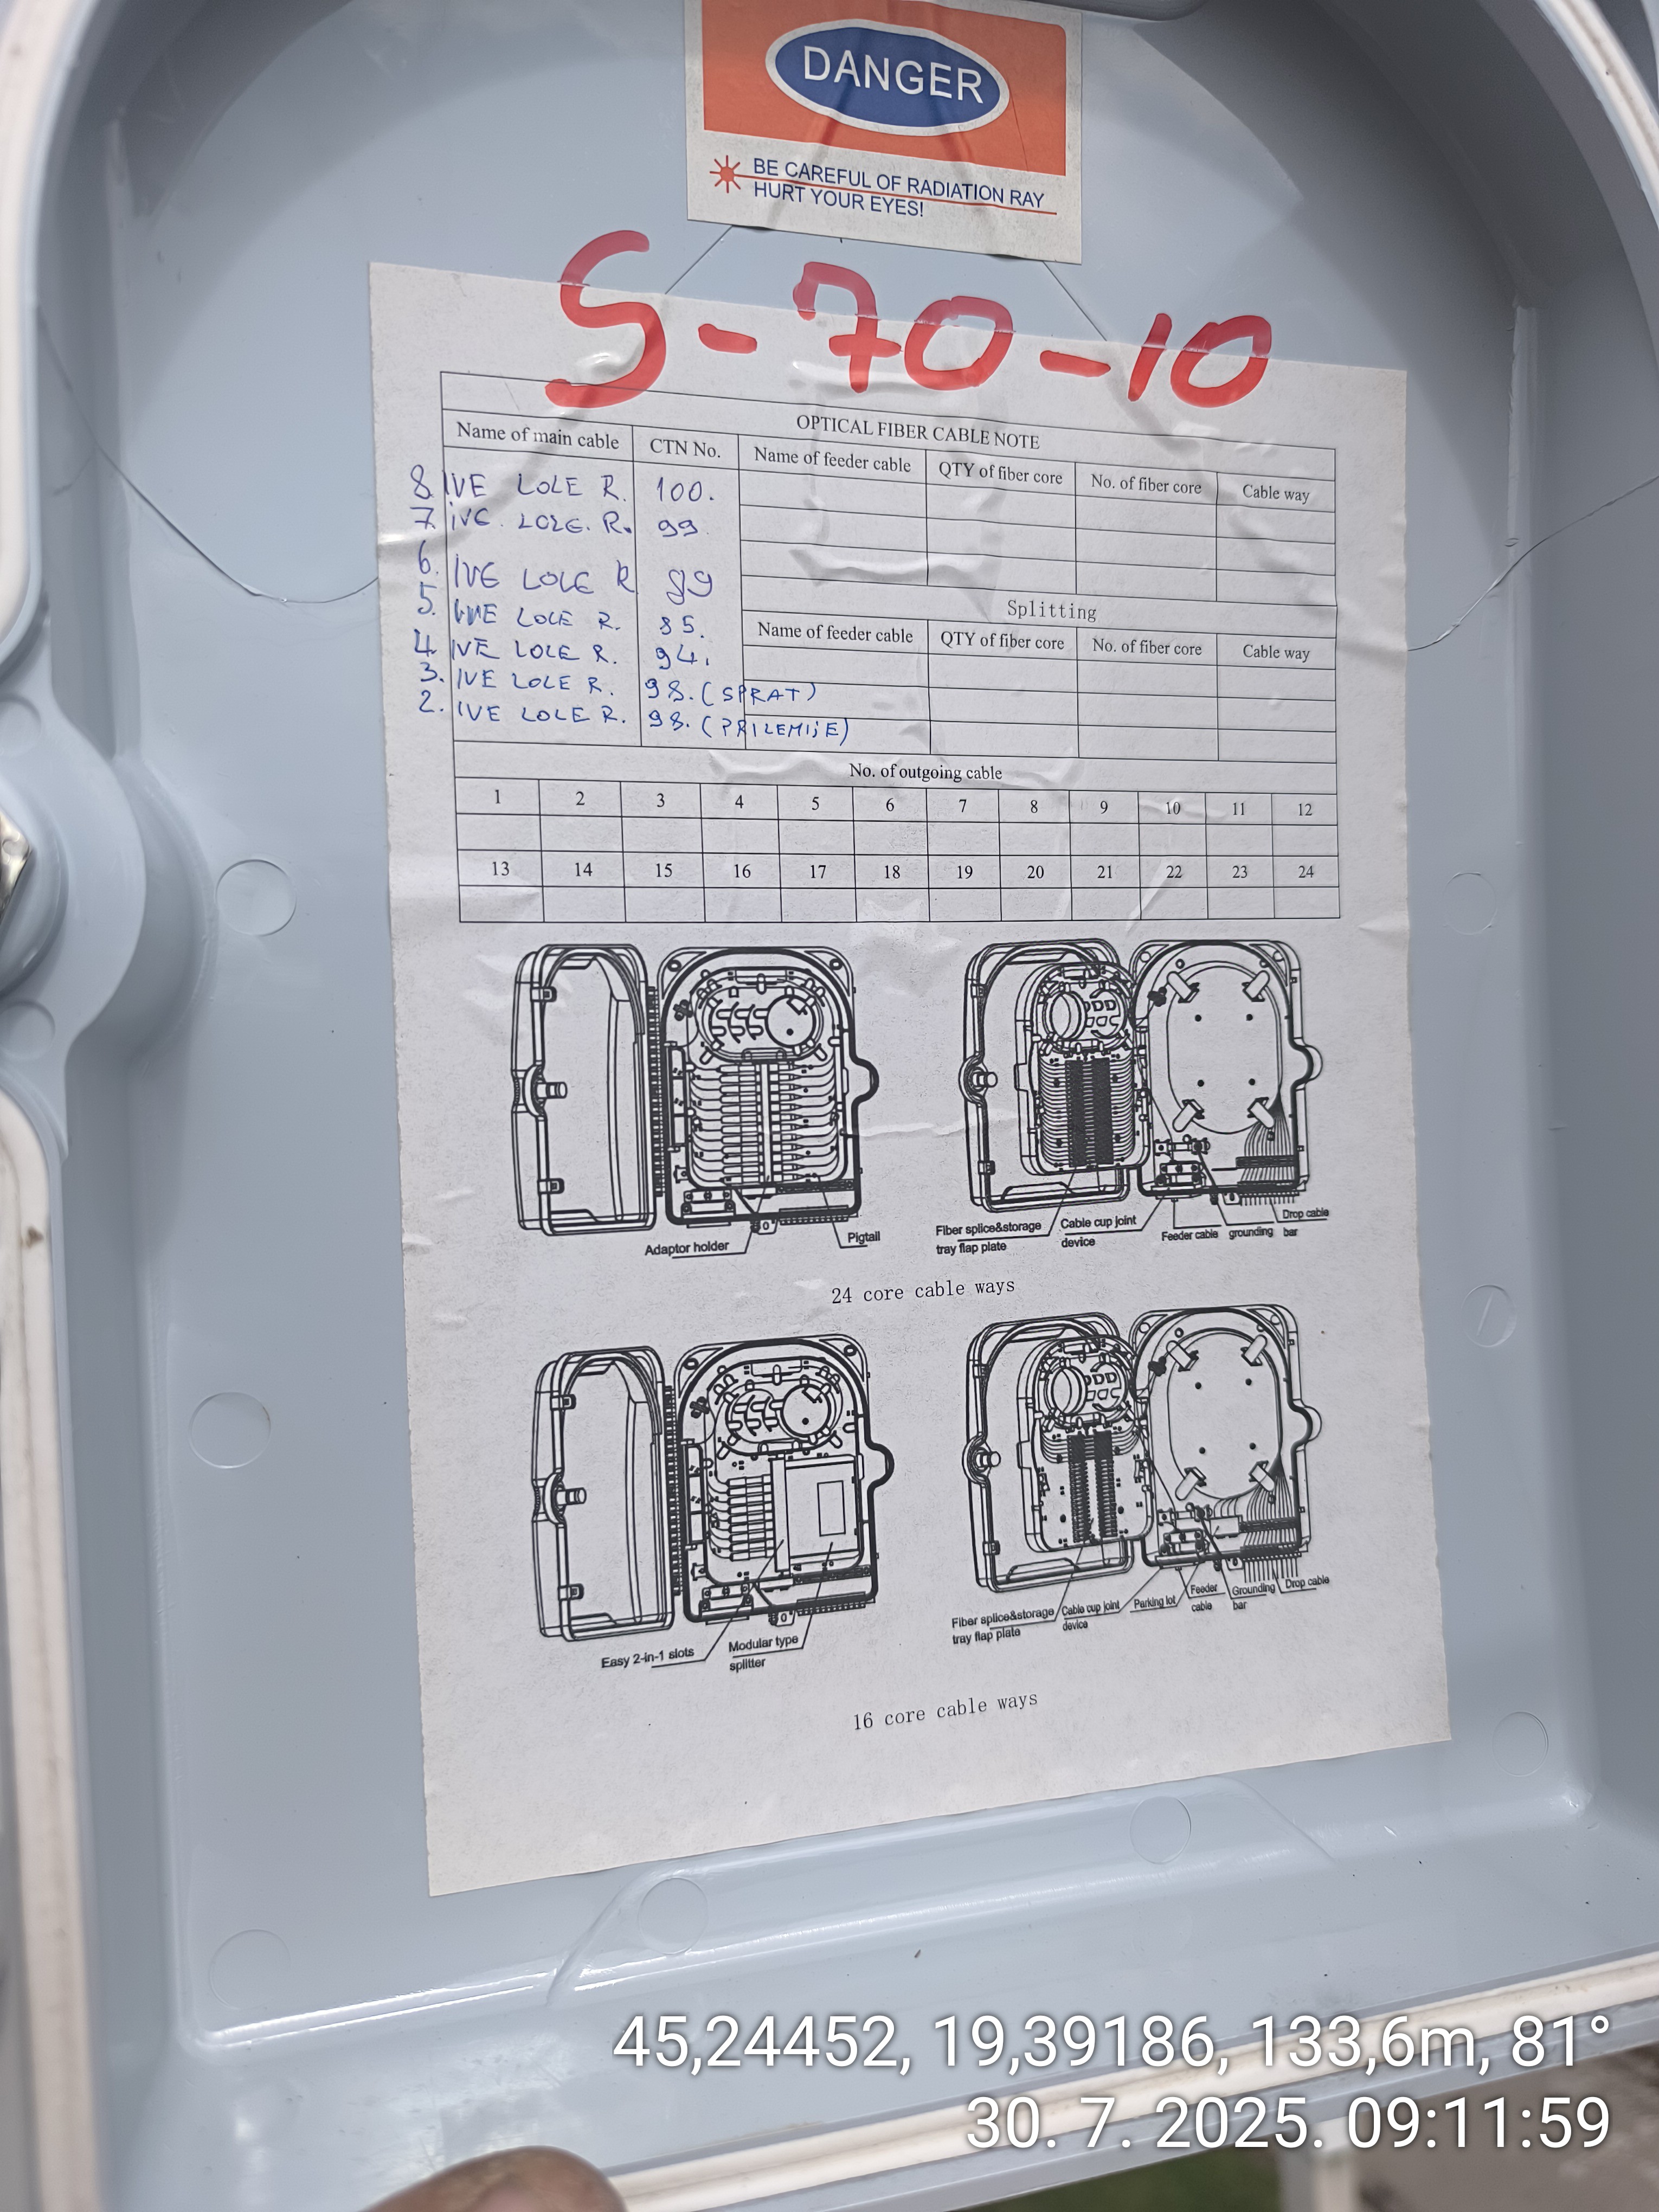 DANGER
BE CAREFUL OF RADIATION RAY
HURT YOUR EYES!
S-70-10
OPTICAL FIBER CABLE NOTE
Name of main cable CTN No. Name of feeder cable QTY of fiber core No. of fiber core Cable way
8. IVE LOLE R. 100.
7. IVE. LOLE. R. 99.
6. IVE LOLE R 89
5. IVE LOLE R. 85.
4. IVE LOLE R. 94.
3. IVE LOLE R. 98. (SPRAT)
2. IVE LOLE R. 98. (PRIZEMIJE)
Splitting
Name of feeder cable QTY of fiber core No. of fiber core Cable way
No. of outgoing cable
1 2 3 4 5 6 7 8 9 10 11 12
13 14 15 16 17 18 19 20 21 22 23 24
Adaptor holder
Pigtail
Fiber splice&storage
tray flap plate
Cable cup joint
device
Feeder cable
grounding
bar
Drop cable
24 core cable ways
Easy 2-in-1 slots
Modular type
splitter
Fiber splice&storage
tray flap plate
Cable cup joint
device
Parking lot
Feeder
cable
Grounding
bar
Drop cable
16 core cable ways
45,24452, 19,39186, 133,6m, 81°
30. 7. 2025. 09:11:59